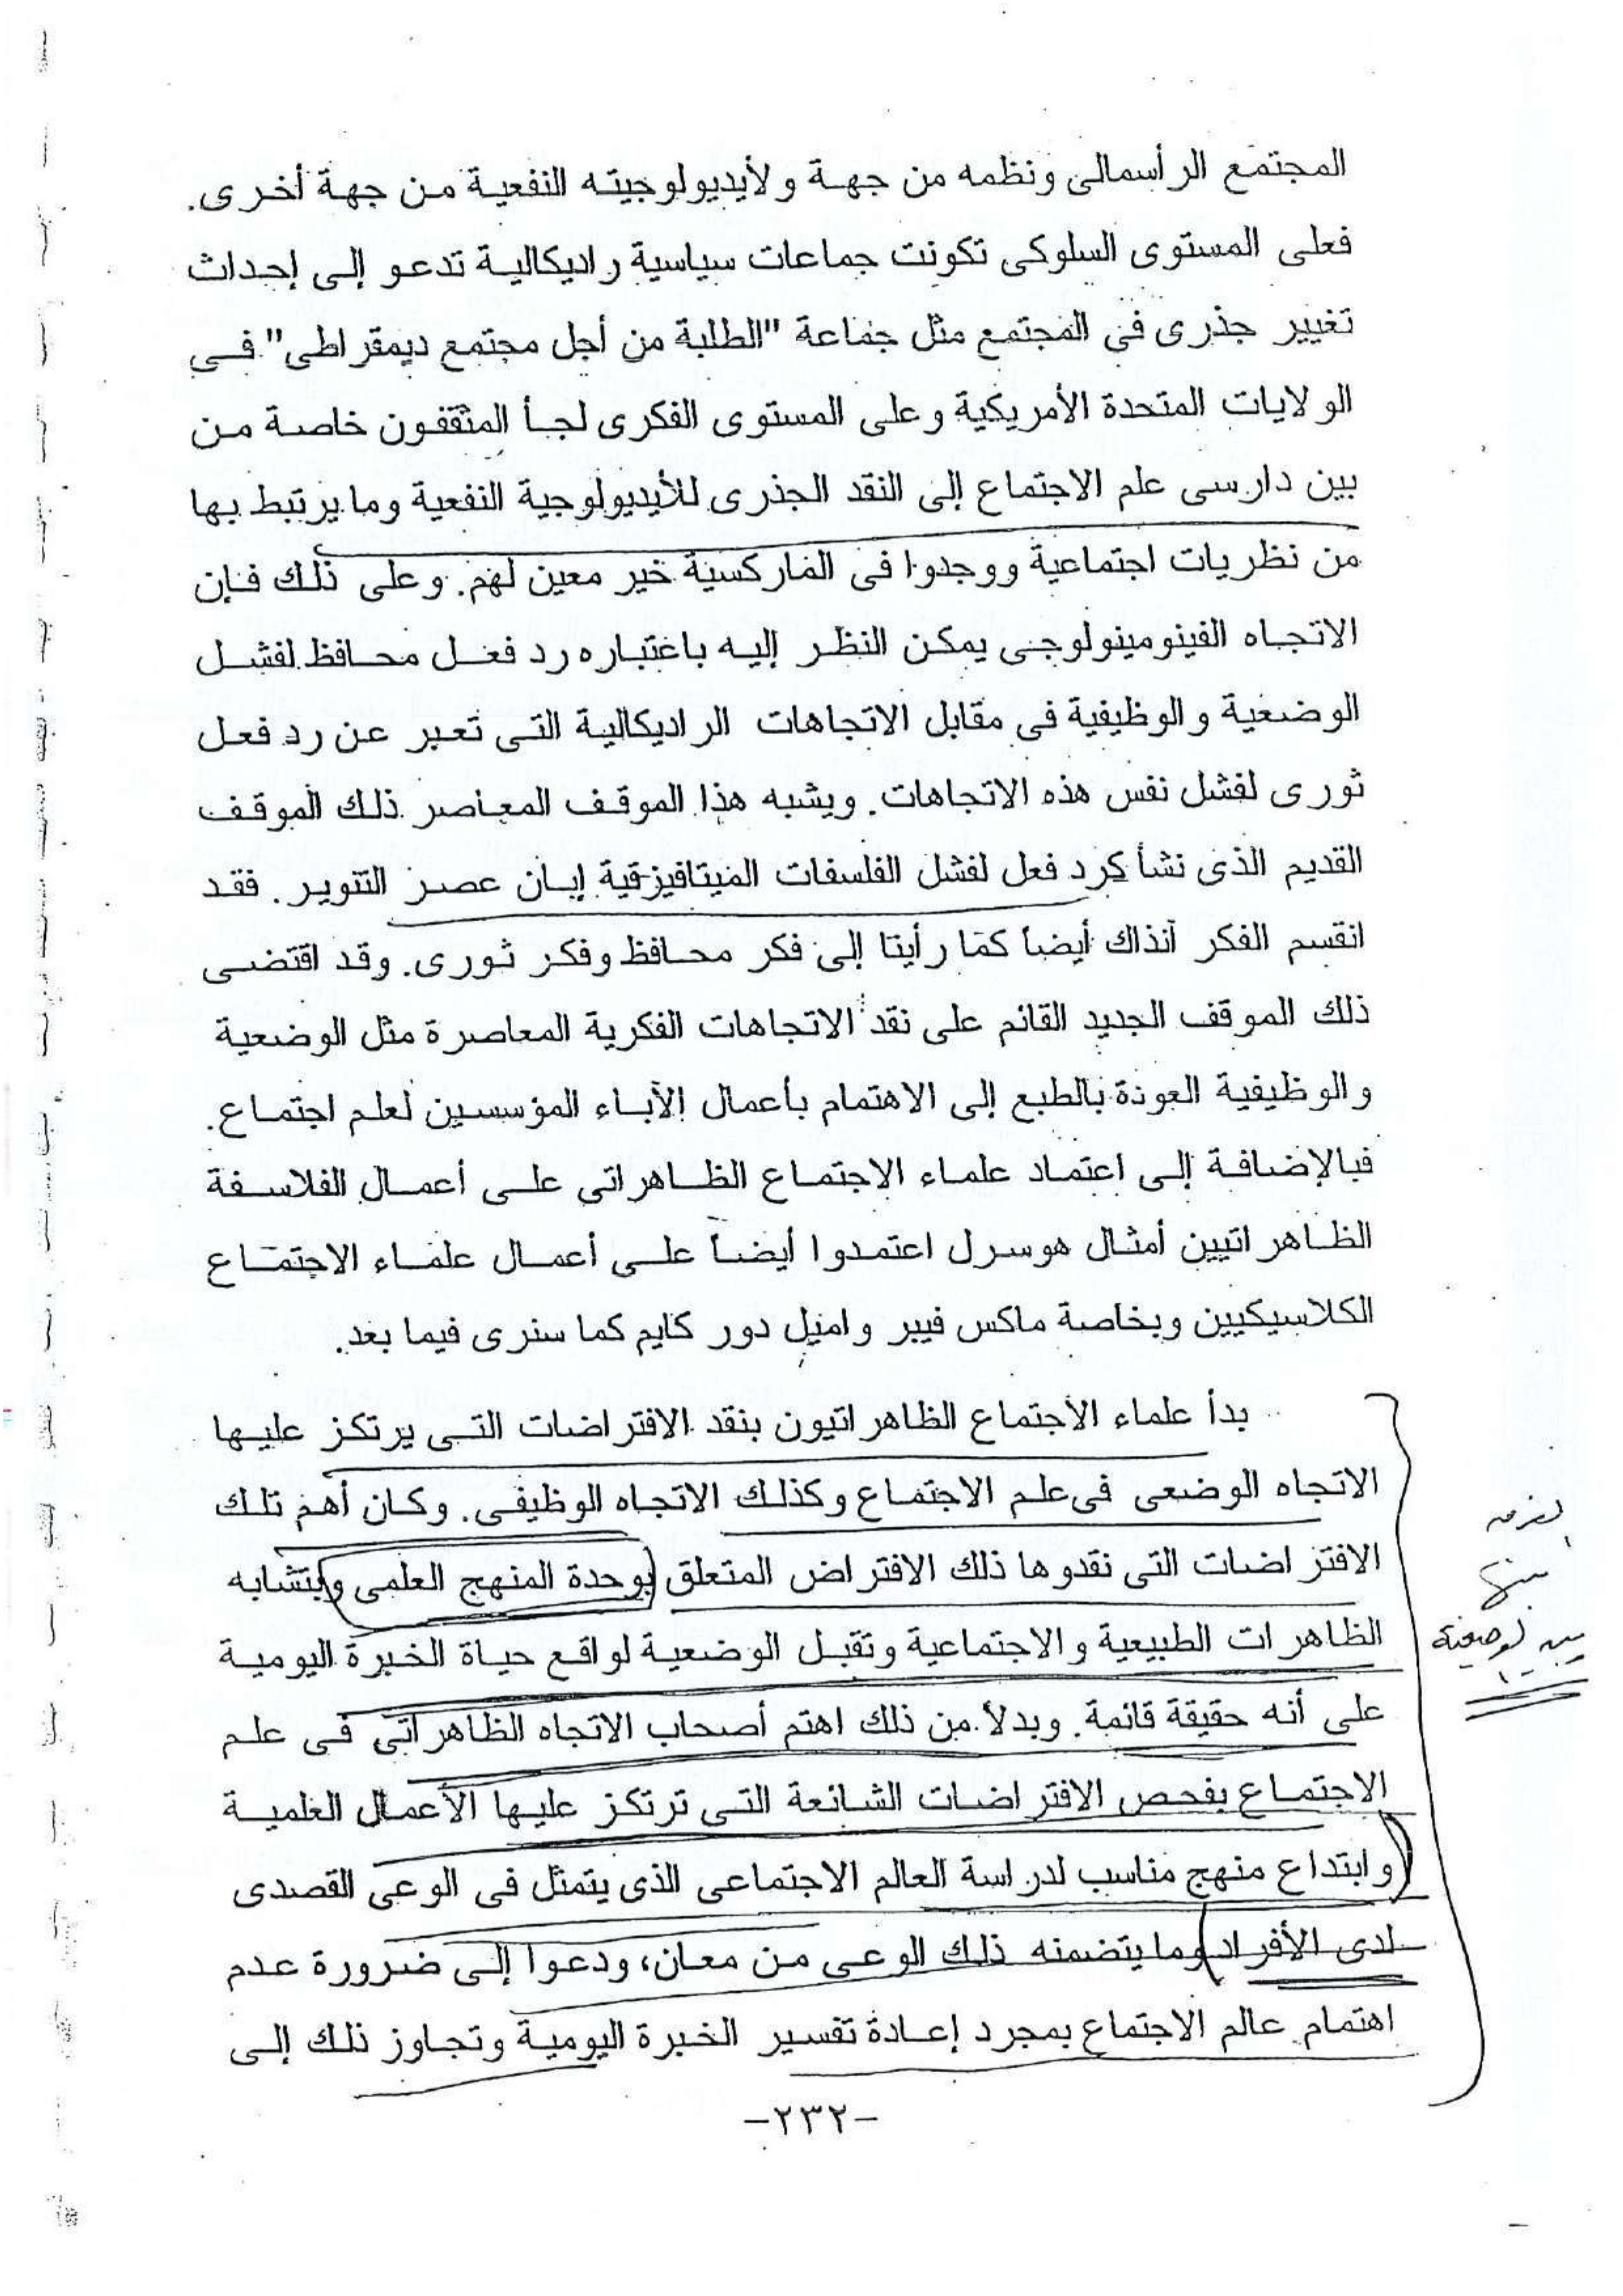 المجتمع الرأسمالى ونظمه من جهة ولأيديولوجيته النفعية من جهة أخرى.
فعلى المستوى السلوكى تكونت جماعات سياسية راديكالية تدعو إلى إحداث
تغيير جذرى فى المجتمع مثل جماعة "الطلبة من أجل مجتمع ديمقراطى" فى
الولايات المتحدة الأمريكية وعلى المستوى الفكرى لجأ المثقفون خاصة من
بين دارسى علم الاجتماع إلى النقد الجذرى للأيديولوجية النفعية وما يرتبط بها
من نظريات اجتماعية ووجدوا فى الماركسية خير معين لهم. وعلى ذلك فإن
الاتجاه الفينومينولوجى يمكن النظر إليه باعتباره رد فعل محافظ لفشل
الوضعية والوظيفية فى مقابل الاتجاهات الراديكالية التى تعبر عن رد فعل
ثورى لفشل نفس هذه الاتجاهات. ويشبه هذا الموقف المعاصر ذلك الموقف
القديم الذى نشأ كرد فعل لفشل الفلسفات الميتافيزقية إبان عصر التنوير. فقد
انقسم الفكر آنذاك أيضاً كما رأينا إلى فكر محافظ وفكر ثورى. وقد اقتضى
ذلك الموقف الجديد القائم على نقد الاتجاهات الفكرية المعاصرة مثل الوضعية
والوظيفية العودة بالطبع إلى الاهتمام بأعمال الأباء المؤسسين لعلم اجتماع.
فبالإضافة إلى اعتماد علماء الاجتماع الظاهراتى على أعمال الفلاسفة
الظاهراتيين أمثال هوسرل اعتمدوا أيضاً على أعمال علماء الاجتماع
الكلاسيكيين وبخاصة ماكس فيبر واميل دور كايم كما سنرى فيما بعد.
بدأ علماء الاجتماع الظاهراتيون بنقد الافتراضات التى يرتكز عليها
الاتجاه الوضعى فى علم الاجتماع وكذلك الاتجاه الوظيفى. وكان أهم تلك
الافتراضات التى نقدوها ذلك الافتراض المتعلق بوحدة المنهج العلمى وبتشابه
الظاهرات الطبيعية والاجتماعية وتقبل الوضعية لواقع حياة الخبرة اليومية
على أنه حقيقة قائمة. وبدلاً من ذلك اهتم أصحاب الاتجاه الظاهراتى فى علم
الاجتماع بفحص الافتراضات الشائعة التى ترتكز عليها الأعمال العلمية
وابتداع منهج مناسب لدراسة العالم الاجتماعى الذى يتمثل فى الوعى القصدى
لدى الأفراد وما يتضمنه ذلك الوعى من معان، ودعوا إلى ضرورة عدم
اهتمام عالم الاجتماع بمجرد إعادة تفسير الخبرة اليومية وتجاوز ذلك إلى
بينها
-٢٣٢-